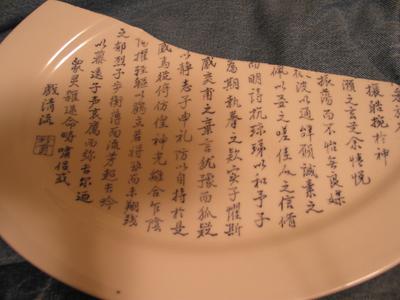 攘皓腕於神
瀨之玄芝余情悅
振蕩而不怡無良媒
波以通辭願誠素之
佩以要之嗟佳人之信脩
而明詩抗瓊珶以和予子
為期執眷之款實子懼斯
感交甫之棄言猶豫而狐疑
以靜志子申禮防以自持於是
感焉徙倚彷徨神光離合乍陰
輕軀鶴立若將飛而未翔踐
之郁烈子步衡薄而流芳超長吟
以慕遠子声哀厲而弥長尔迺
眾灵雜遝命疇嘯侶或
戲清流